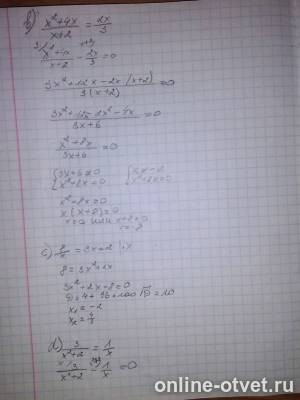 b) (x²+4x)/(x+2) = 2x/3
(x²+4x)/(x+2) - 2x/3 = 0
(3x²+12x-2x(x+2))/(3(x+2)) = 0
(3x²+12x-2x²-4x)/(3x+6) = 0
(x²+8x)/(3x+6) = 0
{3x+6≠0 {x≠-2
{x²+8x=0 {x²+8x=0
x²+8x=0
x(x+8)=0
x=0 или x+8=0
x=-8
c) 8/x = 3x+2 |·x
8=3x²+2x
3x²+2x-8=0
D=4+96=100 √D=10
x₁=-2
x₂=4/3
d) 3/(x²+2) = 1/x
3/(x²+2) - 1/x = 0
online-otvet.ru